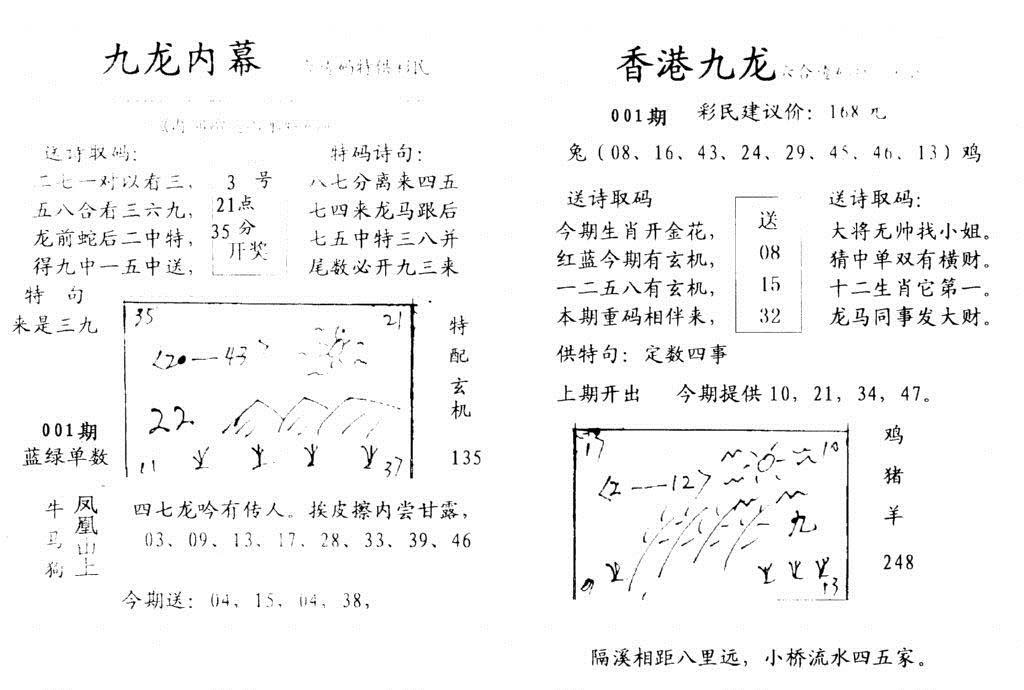 九龙内幕
送诗取码：
二七一对以看三，
五八合看三六九，
龙前蛇后二中特，
得九中一五中送，
3 号
21点
35 分
开奖
特码诗句：
八七分离来四五
七四来龙马跟后
七五中特三八并
尾数必开九三来
特 句
来是三九
35
21
〈20—43〉
22
11
37
特配玄机
135
001期
蓝绿单数
牛马狗
凤凰山上
四七龙吟有传人。挨皮擦内尝甘露，
03、09、13、17、28、33、39、46
今期送：04，15，04，38，
香港九龙
001期 彩民建议价：168 元
兔（08、16、43、24、29、45、46、13）鸡
送诗取码
今期生肖开金花，
红蓝今期有玄机，
一二五八有玄机，
本期重码相伴来，
送
08
15
32
送诗取码：
大将无帅找小姐。
猜中单双有横财。
十二生肖它第一。
龙马同事发大财。
供特句：定数四事
上期开出 今期提供10，21，34，47。
17
10
〈2—12〉
九
9
13
鸡
猪
羊
248
隔溪相距八里远，小桥流水四五家。